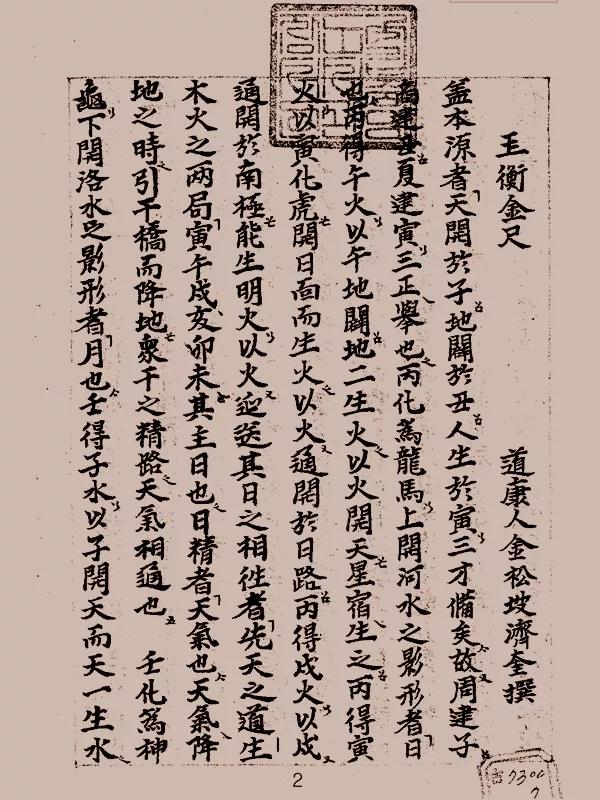 玉衡金尺 道康人金松坡濟奎撰
盖本源者天開於子地闢於丑人生於寅三才備矣故周建子
商建丑夏建寅三正擧也丙化爲龍馬上開河水之影形者日
也丙得午火以午地闢地二生火以火開天星宿生之丙得寅
火以寅化虎開日面而生火以火通開於日路丙得戌火以戌
通開於南極能生明火以火迎送其日之相徃者先天之道生
木火之两局寅午戌亥卯未其主日也日精者天氣也天氣降
地之時引干橋而降地衆千之精路天氣相通也 壬化爲神
龜下開洛水之影形者月也壬得子水以子開天而天一生水
2